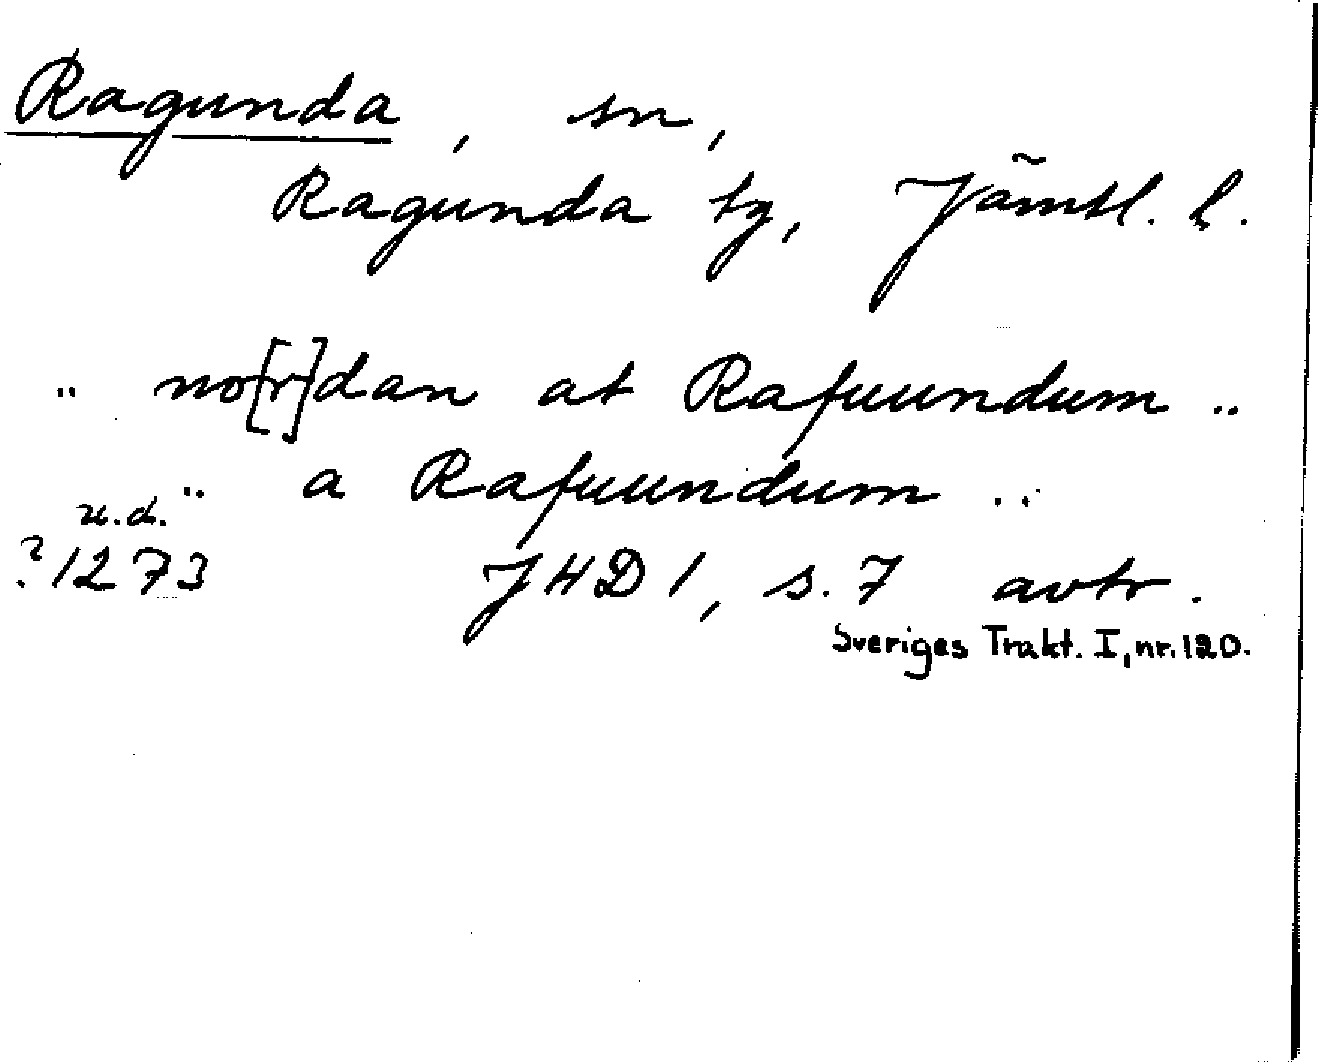 Ragunda, sn,
Ragunda tg, Jämtl. l.
.. no[r]dan at Rafuundum ..
.. a Rafuundum ..
u.d.
? 1273 JHD 1, s. 7 avtr.
Sveriges Trakt. I, nr. 120.